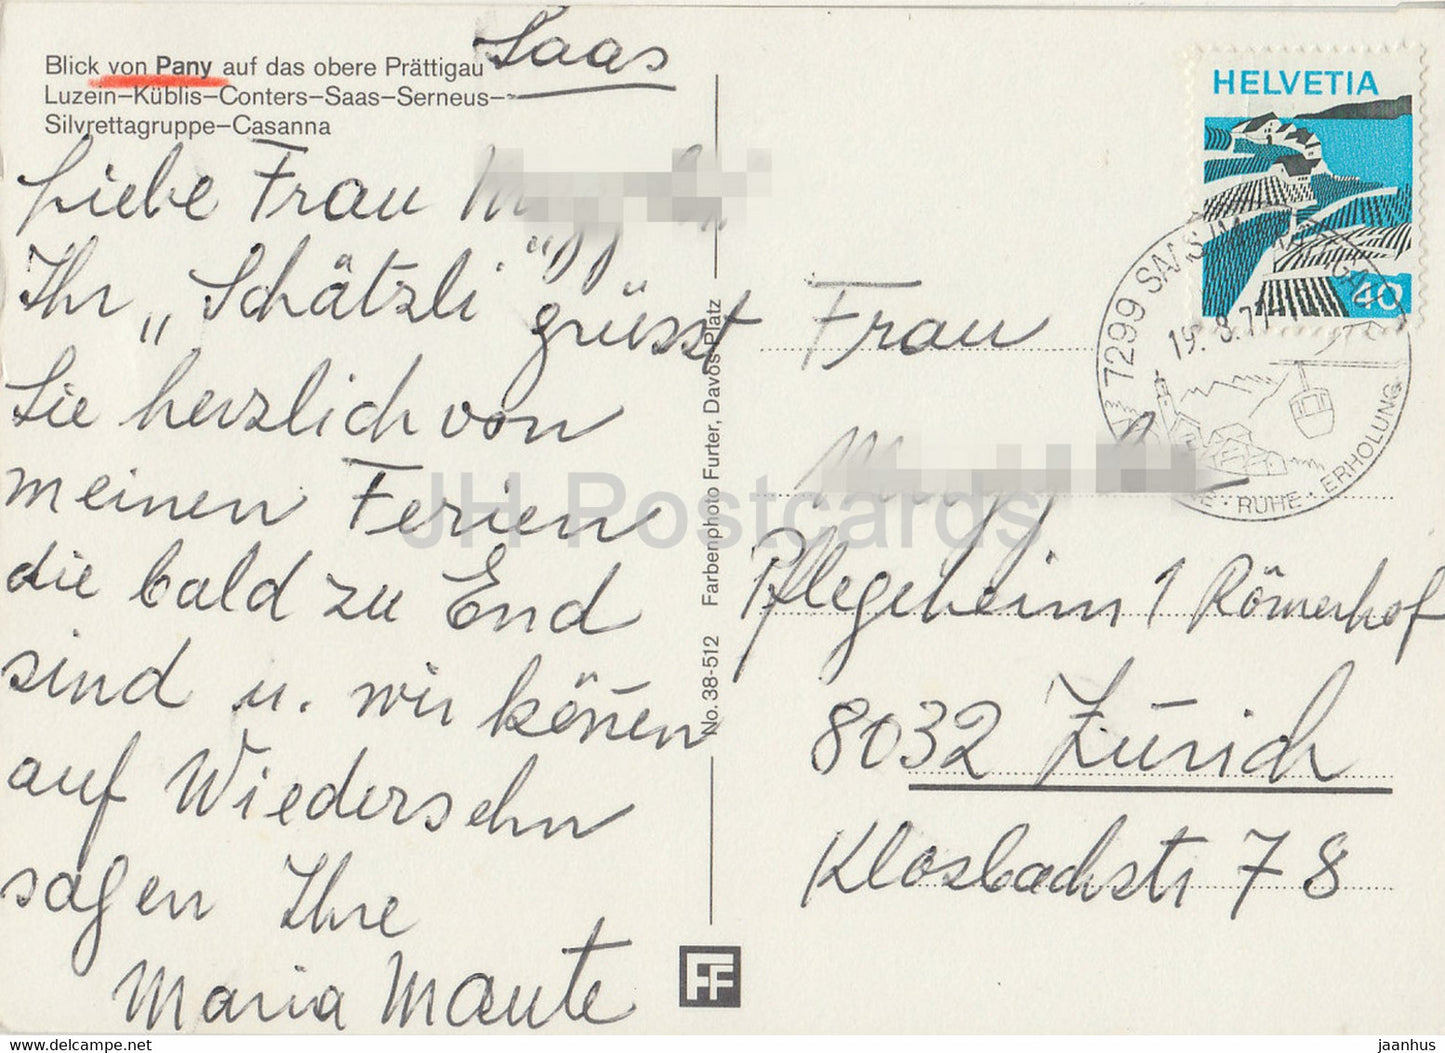 Blick von Pany auf das obere Prättigau
Luzein–Küblis–Conters–Saas–Serneus–
Silvrettagruppe–Casanna
Saas
Liebe Frau
Ihr „Schätzli" grüsst
Sie herzlich von
meinen Ferien
die bald zu End
sind u. wir können
auf Wiedersehn
sagen Ihre
Maria Maute
No. 38-512 Farbenphoto Furter, Davos-Platz
FF
HELVETIA
40
7299 SAAS IM PRÄTTIGAU
19. 8. 77
RUHE · ERHOLUNG
Frau
Pflegeheim 1 Römerhof
8032 Zürich
Klosbachstr 78
JH Postcards
www.delcampe.net
jaanhus